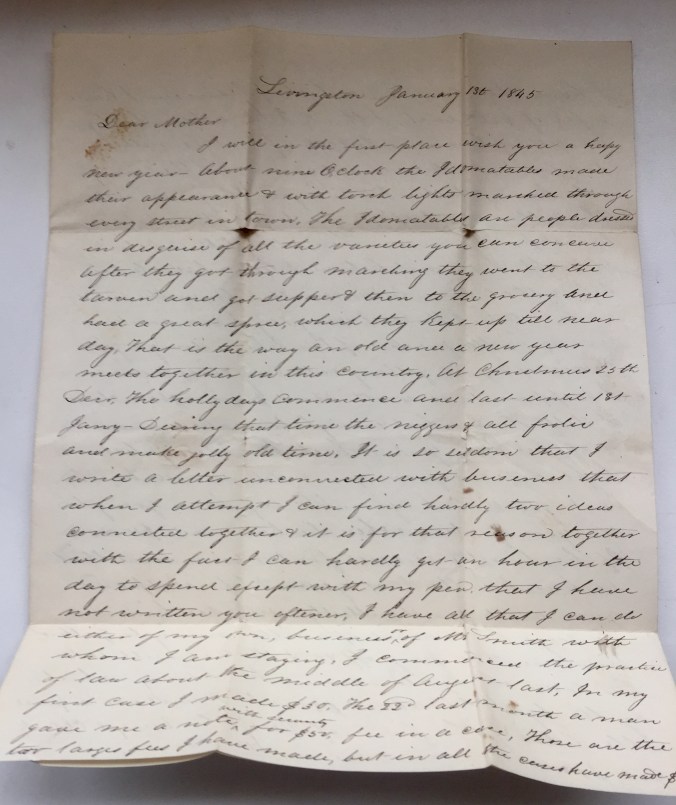 Levingston January 1st 1845
Dear Mother
I will in the first place wish you a hapy
new year - About nine Oclock the Idomatables made
their appearance & with torch lights marched through
every street in town. The Idomatables are people dressed
in disguise of all the varieties you can conceive
after they got through marching they went to the
tarven and got supper & then to the grocery and
had a great spree, which they Kept up till near
day. That is the way an old and a new year
meets together in this country. At Christmas 25th
Decr. The hollydays Commence and last until 1st
Jany - During that time the niggers & all frolic
and make jolly old time. It is so seldom that I
write a letter unconnected with business that
when I attempt I can find hardly two ideas
connected together & it is for that reason together
with the fact I can hardly get an hour in the
day to spend except with my pen. that I have
not written you oftener. I have all that I can do
either of my own, business, or of Mr Smith with
whom I am staying. I commenced the practice
of law about the middle of August last. In my
first case I made $50. The 22d last month a man
gave me a note with security for $50. fee in a case, Those are the
two larges fees I have made, but in all the cases have made $